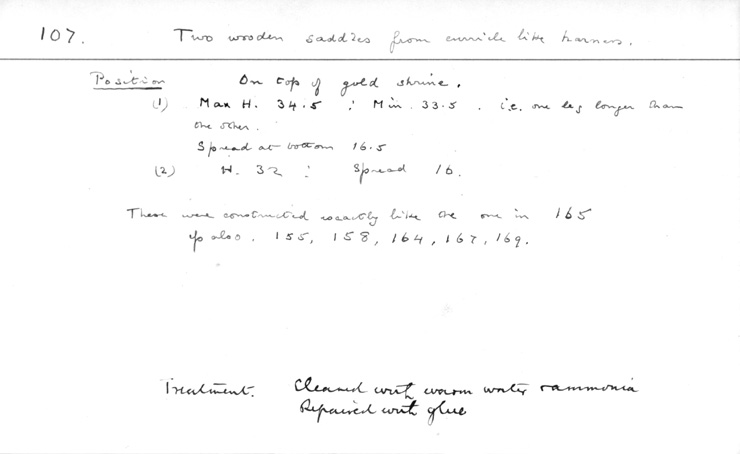 107. Two wooden saddles from curricle like harness.
Position On top of gold shrine.
(1) Max H. 34.5 ; Min. 33.5 . i.e. one leg longer than
the other.
Spread at bottom 16.5
(2) H. 32 ; Spread 16.
These were constructed exactly like the one in 165
cf also. 155, 158, 164, 167, 169.
Treatment. Cleaned with warm water & ammonia
Repaired with glue